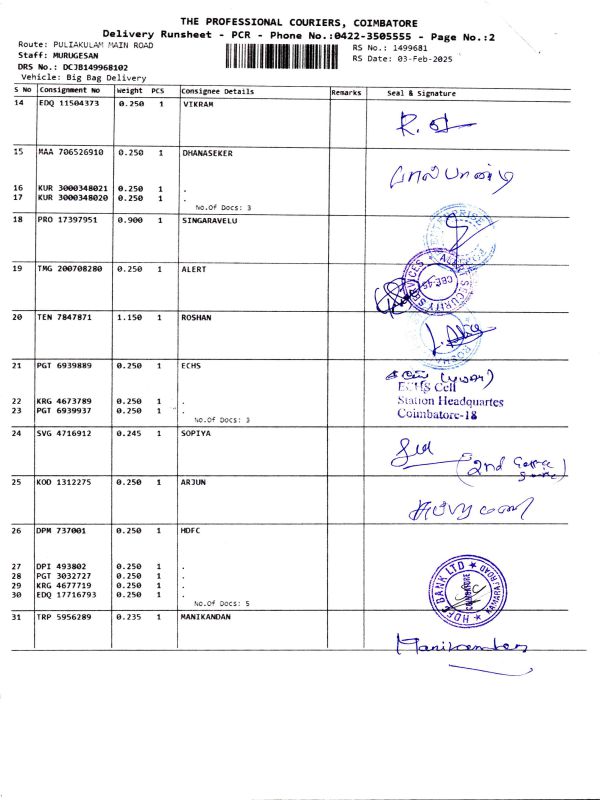 THE PROFESSIONAL COURIERS, COIMBATORE
Delivery Runsheet - PCR - Phone No.:0422-3505555 - Page No.:2
Route: PULIAKULAM MAIN ROAD
RS No.: 1499681
Staff: MURUGESAN
RS Date: 03-Feb-2025
DRS No.: DCJB149968102
Vehicle: Big Bag Delivery
S No Consignment No Weight PCS Consignee Details Remarks Seal & Signature
14 EDQ 11504373 0.250 1 VIKRAM
15 MAA 706526910 0.250 1 DHANASEKER
16 KUR 3000348021 0.250 1 .
17 KUR 3000348020 0.250 1 .
No.Of Docs: 3
18 PRO 17397951 0.900 1 SINGARAVELU
19 TMG 200708280 0.250 1 ALERT
SECURITY SERVICES
CBE-45
20 TEN 7847871 1.150 1 ROSHAN
21 PGT 6939889 0.250 1 ECHS
ECHS Cell
Station Headquartes
Coimbatore-18
22 KRG 4673789 0.250 1 .
23 PGT 6939937 0.250 1 .
No.Of Docs: 3
24 SVG 4716912 0.245 1 SOPIYA
2nd
25 KOD 1312275 0.250 1 ARJUN
26 DPM 737001 0.250 1 HDFC
27 DPI 493802 0.250 1 .
28 PGT 3032727 0.250 1 .
29 KRG 4677719 0.250 1 .
30 EDQ 17716793 0.250 1 .
No.Of Docs: 5
HDFC BANK LTD
KAMARAJ ROAD
COIMBATORE
31 TRP 5956289 0.235 1 MANIKANDAN
Manikandan